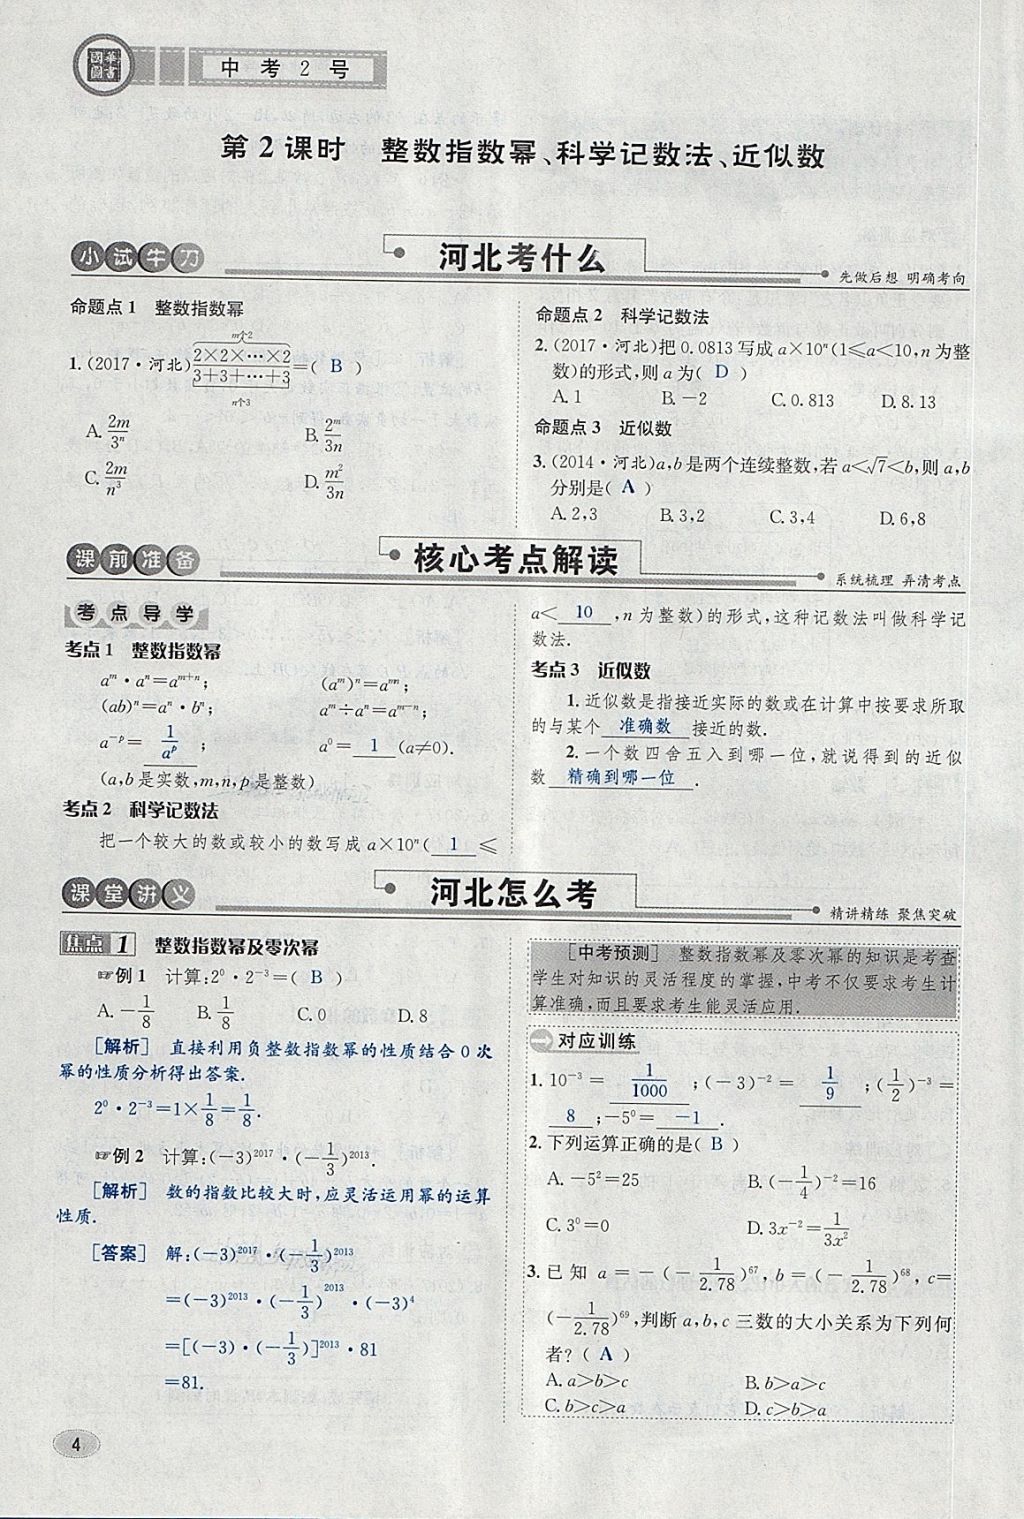 國華圖書
中考2号
第2课时 整数指数幂、科学记数法、近似数
小试牛刀 河北考什么 先做后想 明确考向
命题点1 整数指数幂
1. (2017·河北) $\frac{\overbrace{2×2×\cdots×2}^{m个2}}{\underbrace{3+3+\cdots+3}_{n个3}}$=( B )
A. $\frac{2m}{3^n}$ B. $\frac{2^m}{3n}$
C. $\frac{2m}{n^3}$ D. $\frac{m^2}{3n}$
命题点2 科学记数法
2. (2017·河北)把0.0813写成a×10ⁿ(1≤a<10,n为整
数)的形式,则a为( D )
A. 1 B. −2 C. 0.813 D. 8.13
命题点3 近似数
3. (2014·河北)a,b是两个连续整数,若a<√7<b,则a,b
分别是( A )
A. 2,3 B. 3,2 C. 3,4 D. 6,8
课前准备 核心考点解读 系统梳理 弄清考点
考点导学
考点1 整数指数幂
$a^m·a^n=a^{m+n}$; $(a^m)^n=a^{mn}$;
$(ab)^n=a^n·b^n$; $a^m÷a^n=a^{m-n}$;
$a^{-p}$= $\frac{1}{a^p}$ ; $a^0$= 1 (a≠0).
(a,b是实数,m,n,p是整数)
考点2 科学记数法
把一个较大的数或较小的数写成a×10ⁿ( 1 ≤
a< 10 ,n为整数)的形式,这种记数法叫做科学记
数法.
考点3 近似数
1. 近似数是指接近实际的数或在计算中按要求所取
的与某个 准确数 接近的数.
2. 一个数四舍五入到哪一位,就说得到的近似
数 精确到哪一位 .
课堂讲义 河北怎么考 精讲精练 聚焦突破
焦点1 整数指数幂及零次幂
☞例1 计算:$2^0·2^{-3}$=( B )
A. $-\frac{1}{8}$ B. $\frac{1}{8}$ C. 0 D. 8
[解析] 直接利用负整数指数幂的性质结合0次
幂的性质分析得出答案.
$2^0·2^{-3}=1×\frac{1}{8}=\frac{1}{8}$.
☞例2 计算:$(-3)^{2017}·(-\frac{1}{3})^{2013}$.
[解析] 数的指数比较大时,应灵活运用幂的运算
性质.
[答案] 解:$(-3)^{2017}·(-\frac{1}{3})^{2013}$
$=(-3)^{2013}·(-\frac{1}{3})^{2013}·(-3)^4$
$=[(-3)·(-\frac{1}{3})]^{2013}·81$
=81.
[中考预测] 整数指数幂及零次幂的知识是考查
学生对知识的灵活程度的掌握,中考不仅要求考生计
算准确,而且要求考生能灵活应用.
对应训练
1. $10^{-3}$= $\frac{1}{1000}$ ;$(-3)^{-2}$= $\frac{1}{9}$ ;$(\frac{1}{2})^{-3}$=
8 ;$-5^0$= −1 .
2. 下列运算正确的是( B )
A. $-5^2=25$ B. $(-\frac{1}{4})^{-2}=16$
C. $3^0=0$ D. $3x^{-2}=\frac{1}{3x^2}$
3. 已知 $a=-(-\frac{1}{2.78})^{67}$,$b=(-\frac{1}{2.78})^{68}$,c=
$(-\frac{1}{2.78})^{69}$,判断a,b,c三数的大小关系为下列何
者?( A )
A. a>b>c B. b>a>c
C. b>c>a D. c>b>a
4